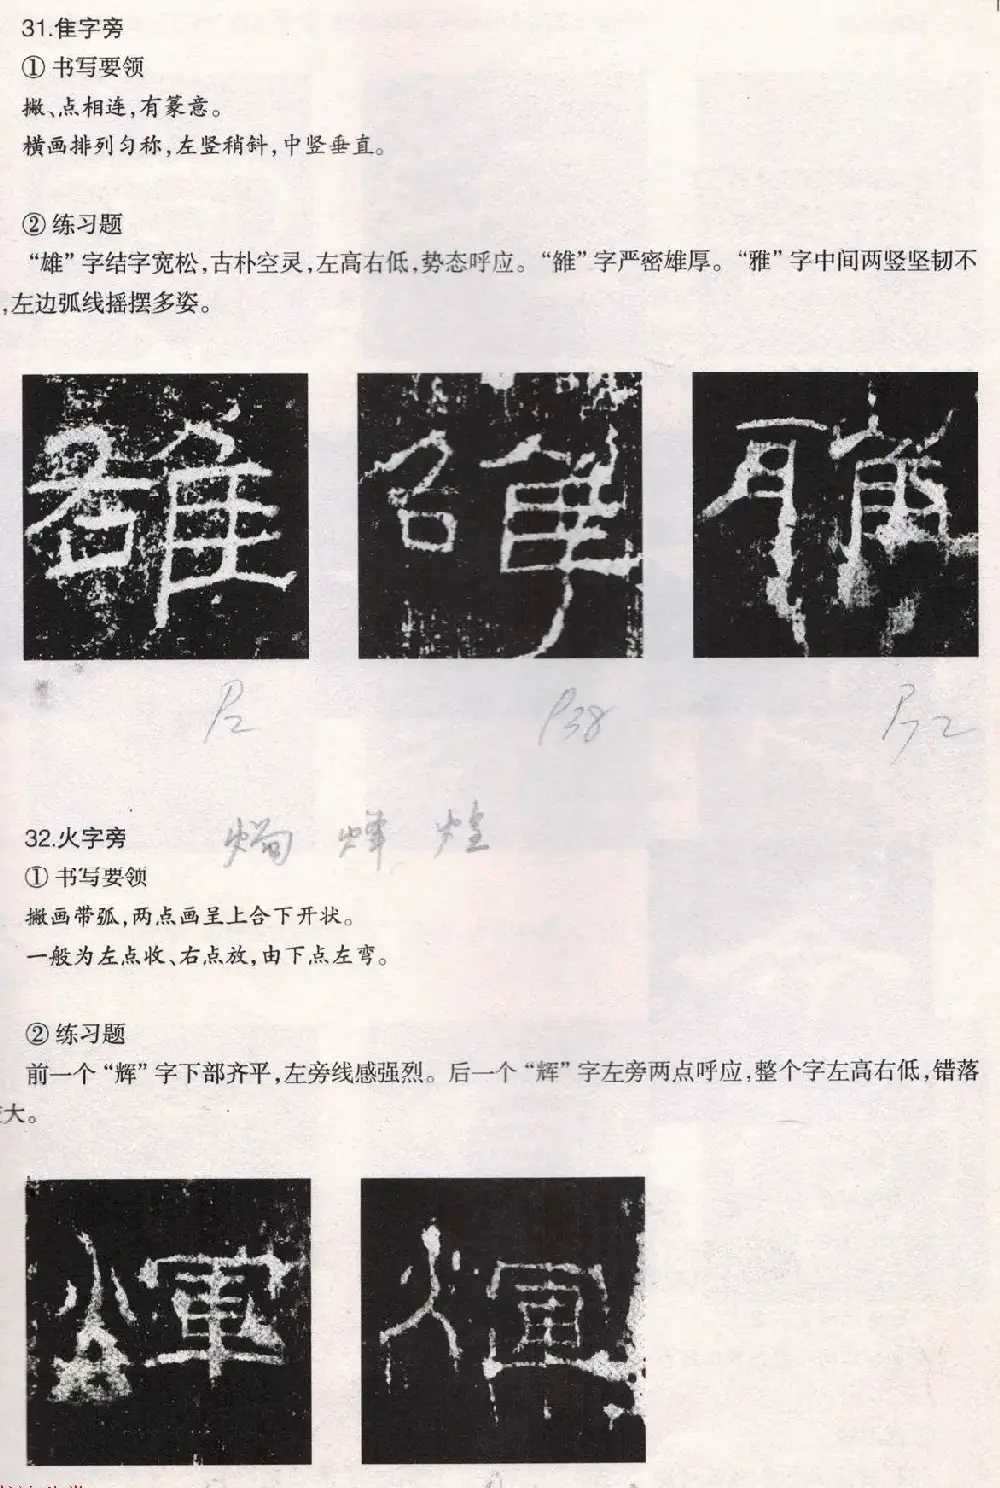 31.隹字旁
① 书写要领
撇、点相连,有篆意。
横画排列匀称,左竖稍斜,中竖垂直。
② 练习题
“雄”字结字宽松,古朴空灵,左高右低,势态呼应。“雒”字严密雄厚。“雅”字中间两竖坚韧不
,左边弧线摇摆多姿。
P2
P38
P72
32.火字旁
烽 煌
① 书写要领
撇画带弧,两点画呈上合下开状。
一般为左点收、右点放,由下点左弯。
② 练习题
前一个“辉”字下部齐平,左旁线感强烈。后一个“辉”字左旁两点呼应,整个字左高右低,错落
大。